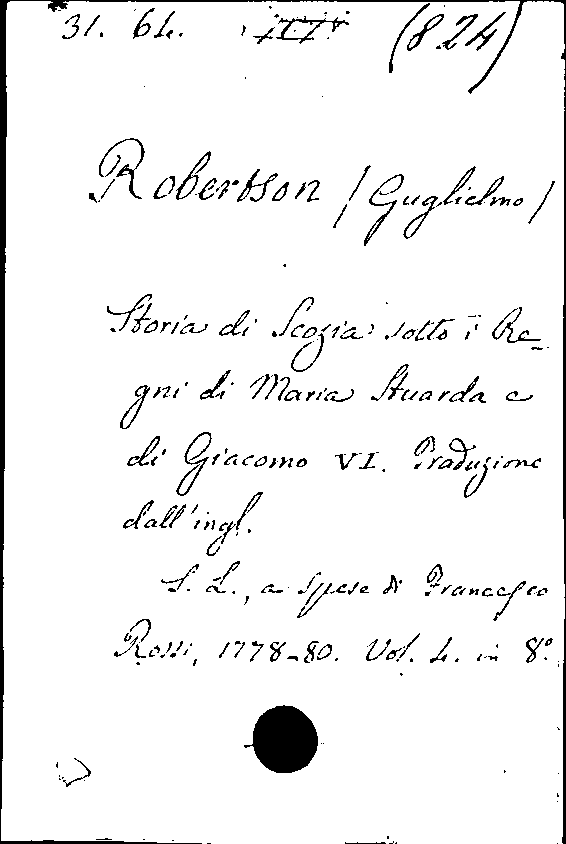 31. 64. (824)
Robertson / Guglielmo /
Storia di Scozia sotto i Re-
gni di Maria Stuarda e
di Giacomo VI. Traduzione
dall'ingl.
S. L., a spese di Francesco
Rossi, 1778-80. Vol. 4. in 8º.